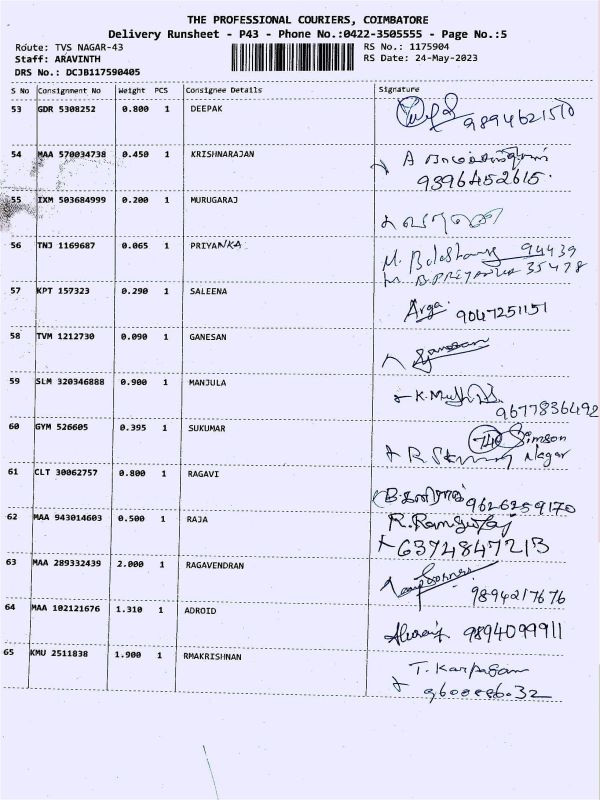 THE PROFESSIONAL COURIERS, COIMBATORE
Delivery Runsheet - P43 - Phone No.:0422-3505555 - Page No.:5
Route: TVS NAGAR-43 RS No.: 1175904
Staff: ARAVINTH RS Date: 24-May-2023
DRS No.: DCJB117590405
S No Consignment No Weight PCS Consignee Details Signature
53 GDR 5308252 0.800 1 DEEPAK
9894621510
54 MAA 570034738 0.450 1 KRISHNARAJAN A
9396452615.
55 IXM 503684999 0.200 1 MURUGARAJ
56 TNJ 1169687 0.065 1 PRIYANKA M. 94439
B.PRIYANKA 35478
57 KPT 157323 0.290 1 SALEENA Arga.
9047251151
58 TVM 1212730 0.090 1 GANESAN Ganesan
59 SLM 320346888 0.900 1 MANJULA K.
9677836492
60 GYM 526605 0.395 1 SUKUMAR 740 Simson
R Nagar
61 CLT 30062757 0.800 1 RAGAVI
9626259170
62 MAA 943014603 0.500 1 RAJA R.
6374847213
63 MAA 289332439 2.000 1 RAGAVENDRAN
9894217676
64 MAA 102121676 1.310 1 ADROID
9894099911
65 KMU 2511838 1.900 1 RMAKRISHNAN T. Karpagam